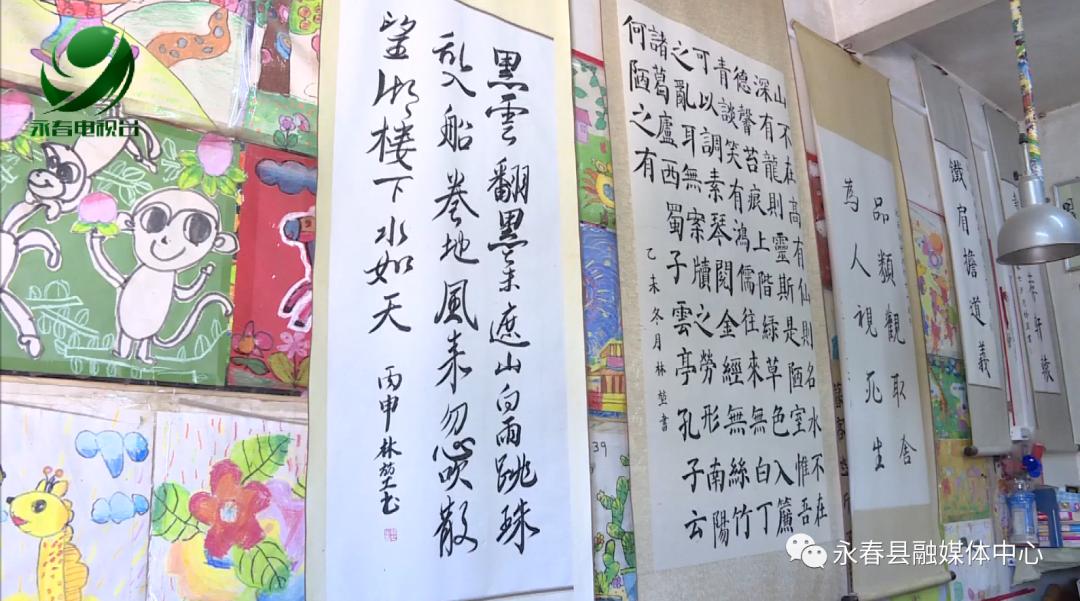 永春电视台
黑雲翻墨未遮山白雨跳珠
乱入船卷地風来忽吹散
望湖楼下水如天
丙申林堃书
山不在高有仙則名水不在
深有龍則靈斯是陋室惟吾
德馨苔痕上階緑草色入簾
青談笑有鴻儒往來無白丁
可以調素琴閱金經無絲竹
之亂耳無案牘之勞形南陽
諸葛廬西蜀子雲亭孔子云
何陋之有
乙未冬月林堃書
品類觀取舍
為人視死生
鐵肩擔道義
39
永春县融媒体中心